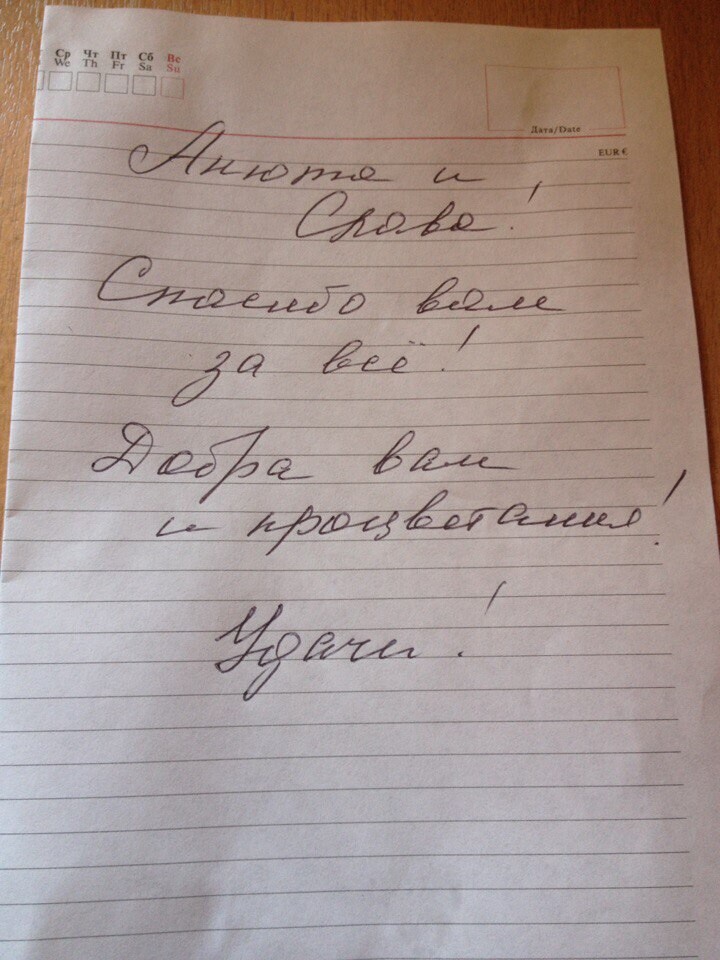 Ср Чт Пт Сб Вс
We Th Fr Sa Su
Дата/Date
EUR €
Анюта и
Слава!
Спасибо вам
за всё!
Добра вам
и процветания!
Удачи!